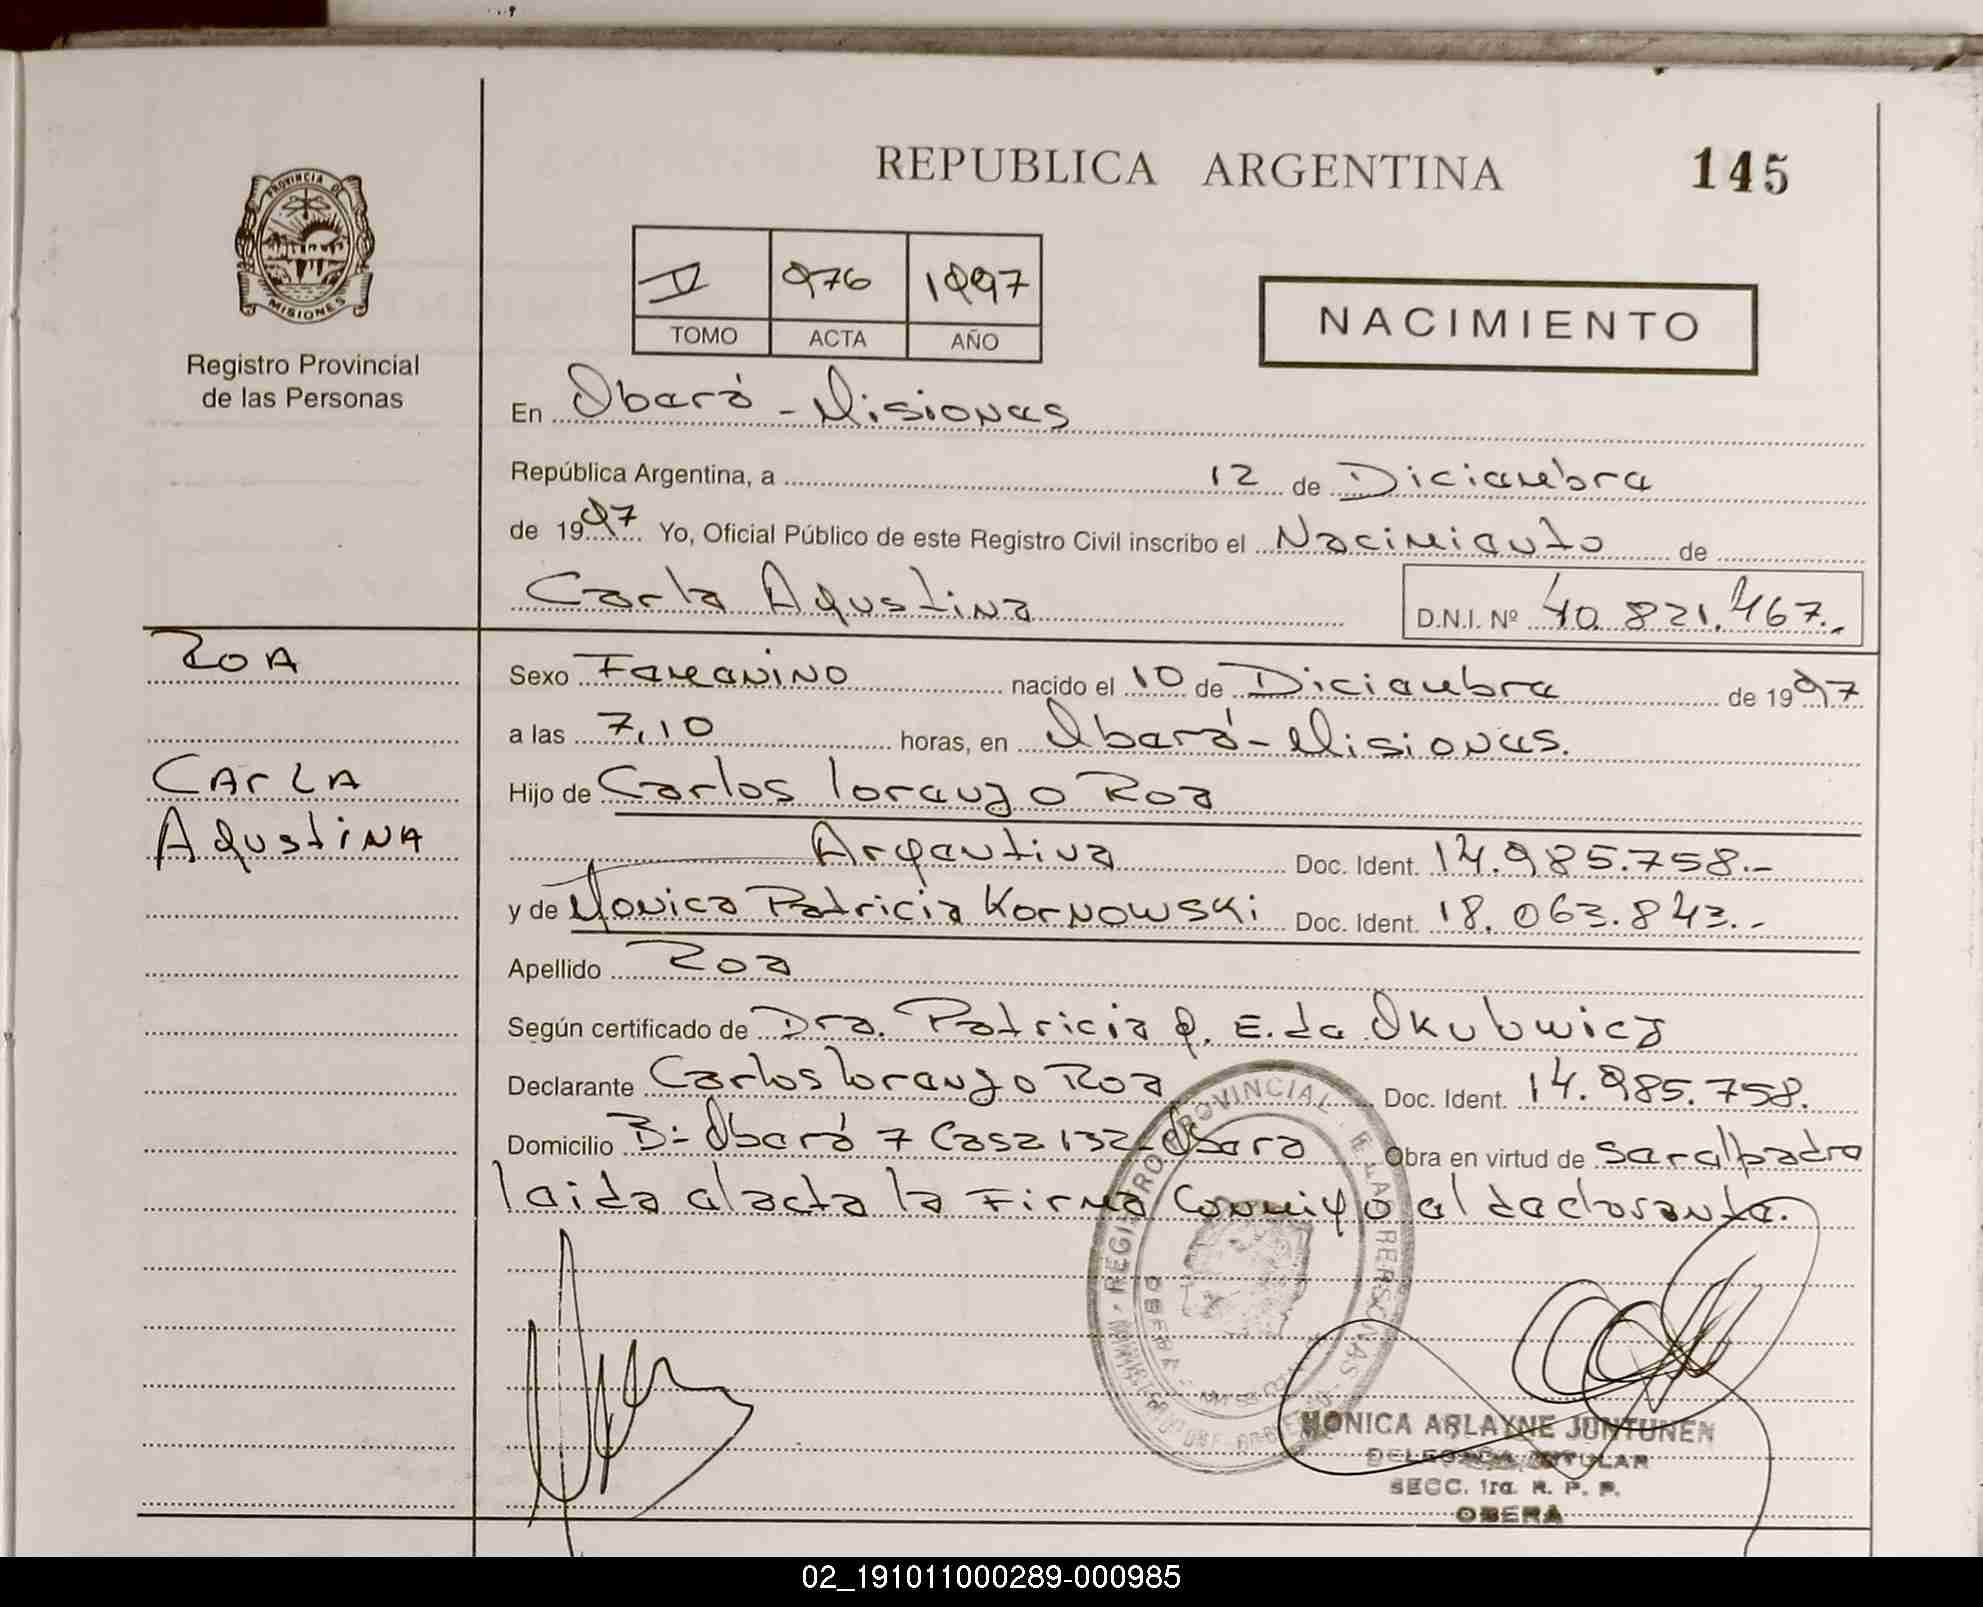 REPUBLICA ARGENTINA
145
PROVINCIA DE
MISIONES
Registro Provincial
de las Personas
V 976 1997
TOMO ACTA AÑO
NACIMIENTO
En Oberá - Misiones
República Argentina, a 12 de Diciembre
de 1997 Yo, Oficial Público de este Registro Civil inscribo el Nacimiento de
Carla Agustina D.N.I. Nº 40.821.467.-
ROA
Sexo Femenino nacido el 10 de Diciembre de 1997
a las 7,10 horas, en Oberá - Misiones.
CARLA
Hijo de Carlos Lorenzo Roa
AgustiNA
Argentina Doc. Ident. 14.985.758.-
y de Monica Patricia Kornowski Doc. Ident. 18.063.843.-
Apellido Roa
Según certificado de Dra. Patricia G. E. de Okulowicz
Declarante Carlos Lorenzo Roa Doc. Ident. 14.985.758.
Domicilio B: Oberá 7 Casa 132 - Obera Obra en virtud de ser el padre
leida el acta la Firma Conmigo el declarante.
REGISTRO PROVINCIAL DE LAS PERSONAS
MONICA ARLAYNE JUNTUNEN
DELEGADA TITULAR
SECC. 1ra. R. P. P.
OBERA
02_191011000289-000985